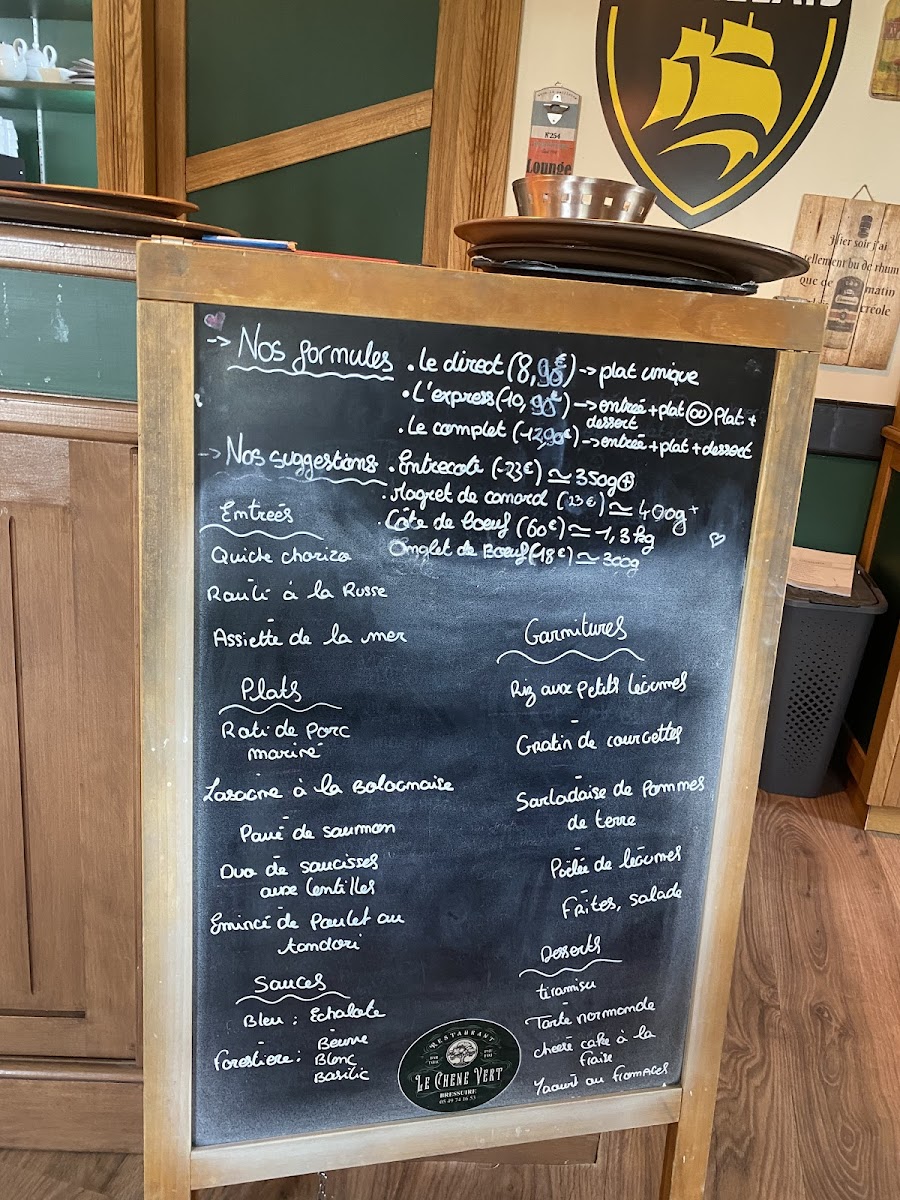 N°254
Lounge
Hier soir j'ai
tellement bu de rhum
que ce matin
créole
-> Nos formules . Le direct (8,90€) -> plat unique
. L'express (10,90€) -> entrée + plat ou Plat +
dessert
. Le complet (12,90€) -> entrée + plat + dessert
-> Nos suggestions . Entrecote (23€) ≃ 350g +
. Magret de canard (23€) ≃ 400g +
. Côte de boeuf (60€) ≃ 1,3kg
Onglet de Boeuf (18€) ≃ 300g
Entrées
Quiche chorizo
Roulé à la Russe
Assiette de la mer
Plats
Roti de Porc
mariné
Lasagne à la Bolognaise
Pavé de saumon
Duo de saucisses
aux lentilles
Emincé de Poulet au
tandori
Sauces
Bleu : Echalote
Forestière : Beurre
Blanc
Basilic
Garnitures
Riz aux Petits légumes
Gratin de courgettes
Sarladaise de Pommes
de terre
Poêlée de légumes
Frites, salade
Desserts
tiramisu
Tarte normande
cheese cake à la
fraise
Yaourt ou fromages
RESTAURANT
LE CHENE VERT
BRESSUIRE
05 49 74 16 53